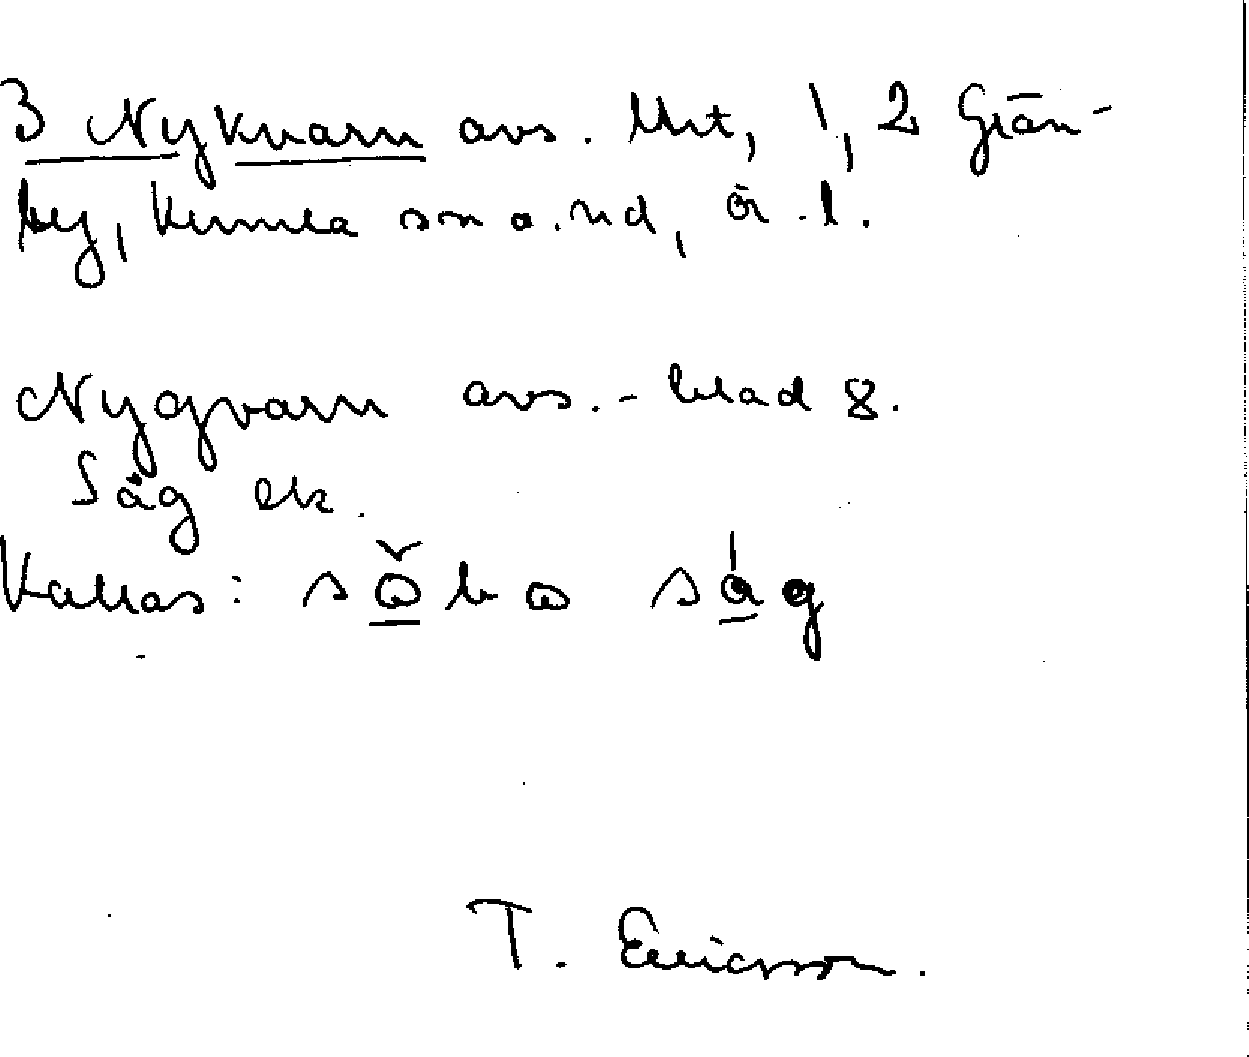 3 Nykvarn avs. Utt, 1, 2 Grän-
by, Kumla sn o. hd, ör.l.
Nygvarn avs. - blad 8.
Såg ek.
Kallas: såbo såg
T. Ericsson.